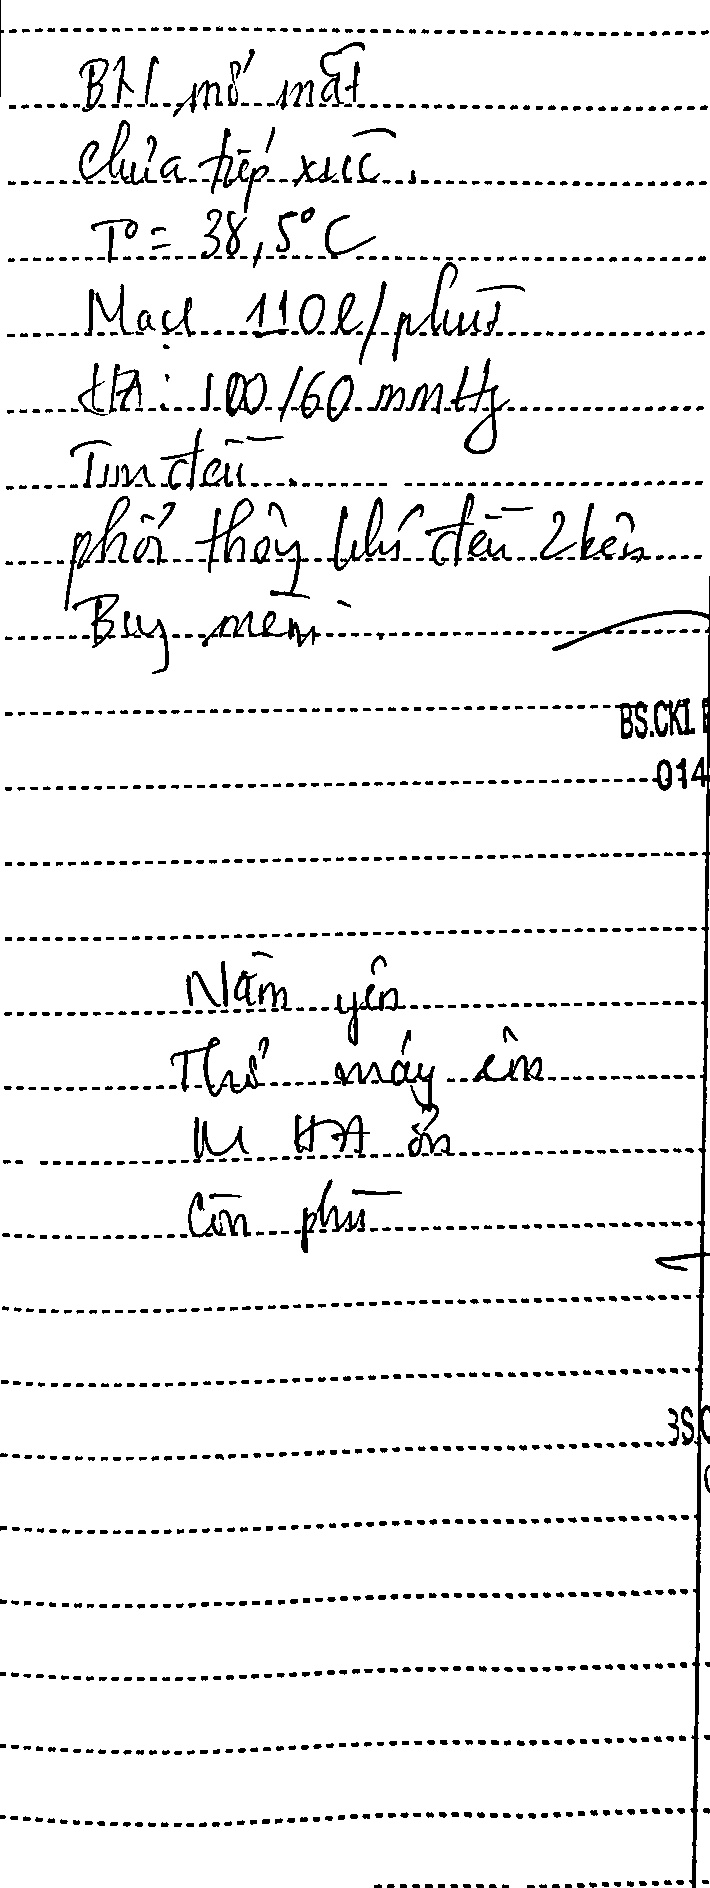 BN mở mắt
chưa tiếp xúc.
T° = 38,5°C
Mạch 110 l/phút
HA: 100/60 mmHg
Tim đều.
phổi thông khí đều 2 bên
Bụng mềm.
BS.CKI.
014
Nằm yên
Thở máy êm
M HA ổn
Còn phù
BS.C